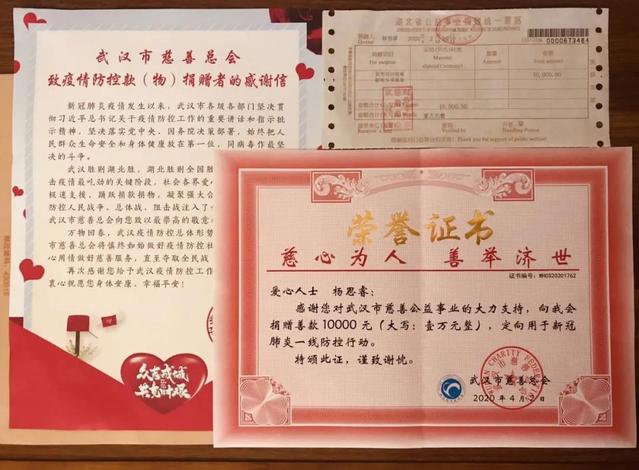 武汉市慈善总会
致疫情防控款（物）捐赠者的感谢信
新冠肺炎疫情发生以来，武汉市各级各部门坚决贯
彻习近平总书记关于疫情防控工作的重要讲话和指示批
示精神，坚决落实党中央、国务院决策部署，始终把人
民群众生命安全和身体健康放在第一位，同病毒作最坚
决的斗争。
武汉胜则湖北胜，湖北胜则全国胜
击疫情最吃劲的关键阶段，社会各界爱心
极速支援，踊跃捐款捐物，凝聚强大合
防控人民战争、总体战、阻击战注入了
武汉市慈善总会向您致以最崇高的敬意
万物回春，武汉疫情防控总体形势
市慈善总会将慎终如始做好疫情防控社
心用情做好慈善服务，直至夺取全民战
再次感谢您给予武汉疫情防控工作
衷心祝愿您身体安康，幸福平安！
众志成城
共克时艰
湖北省公益事业捐赠统一票据
0000673484
10,000.00
10,000.00
荣誉证书
慈心为人 善举济世
证书编号：WHCS20201762
爱心人士 杨思睿：
感谢您对武汉市慈善公益事业的大力支持，向我会
捐赠善款10000元（大写：壹万元整），定向用于新冠
肺炎一线防控行动。
特颁此证，谨致谢忱。
武汉市慈善总会
2020年4月2日